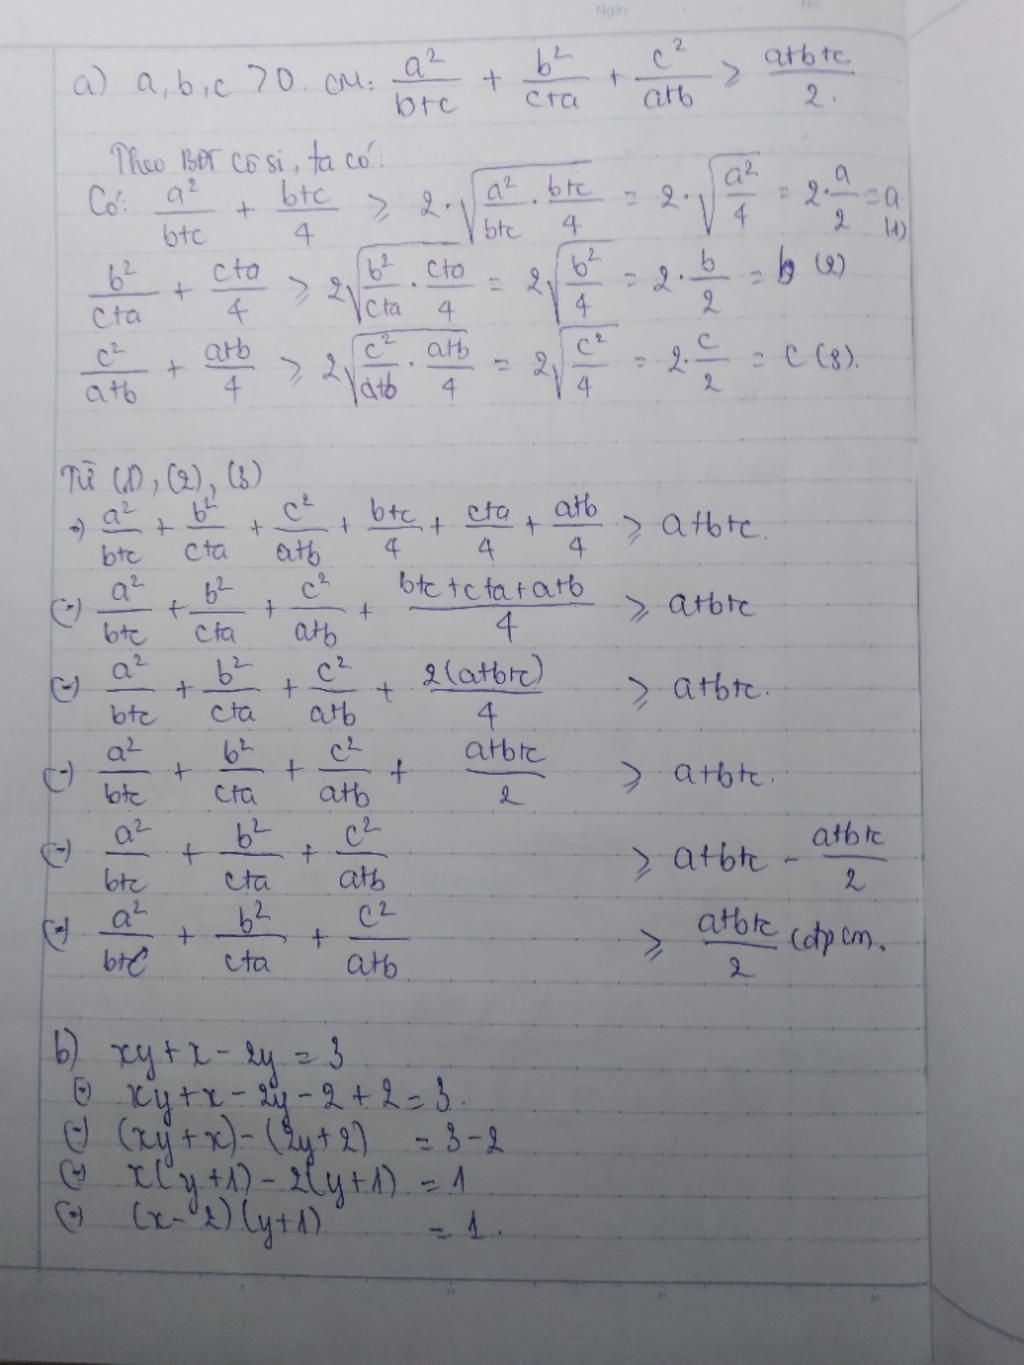 Ngày No.
a) a, b, c > 0. CM: a²/(b+c) + b²/(c+a) + c²/(a+b) ≥ (a+b+c)/2.
Theo BĐT cô si, ta có:
Có: a²/(b+c) + (b+c)/4 ≥ 2.√(a²/(b+c) . (b+c)/4) = 2.√(a²/4) = 2.a/2 = a (1)
b²/(c+a) + (c+a)/4 ≥ 2√(b²/(c+a) . (c+a)/4) = 2√(b²/4) = 2.b/2 = b (2)
c²/(a+b) + (a+b)/4 ≥ 2√(c²/(a+b) . (a+b)/4) = 2√(c²/4) = 2.c/2 = c (3).
Từ (1), (2), (3)
⇒ a²/(b+c) + b²/(c+a) + c²/(a+b) + (b+c)/4 + (c+a)/4 + (a+b)/4 ≥ a+b+c.
(=) a²/(b+c) + b²/(c+a) + c²/(a+b) + (b+c+c+a+a+b)/4 ≥ a+b+c
(=) a²/(b+c) + b²/(c+a) + c²/(a+b) + 2(a+b+c)/4 ≥ a+b+c.
(=) a²/(b+c) + b²/(c+a) + c²/(a+b) + (a+b+c)/2 ≥ a+b+c.
(=) a²/(b+c) + b²/(c+a) + c²/(a+b) ≥ a+b+c - (a+b+c)/2
(=) a²/(b+c) + b²/(c+a) + c²/(a+b) ≥ (a+b+c)/2 (đpcm).
b) xy + x - 2y = 3
(=) xy + x - 2y - 2 + 2 = 3.
(=) (xy + x) - (2y + 2) = 3 - 2
(=) x(y+1) - 2(y+1) = 1
(=) (x - 2)(y+1) = 1.